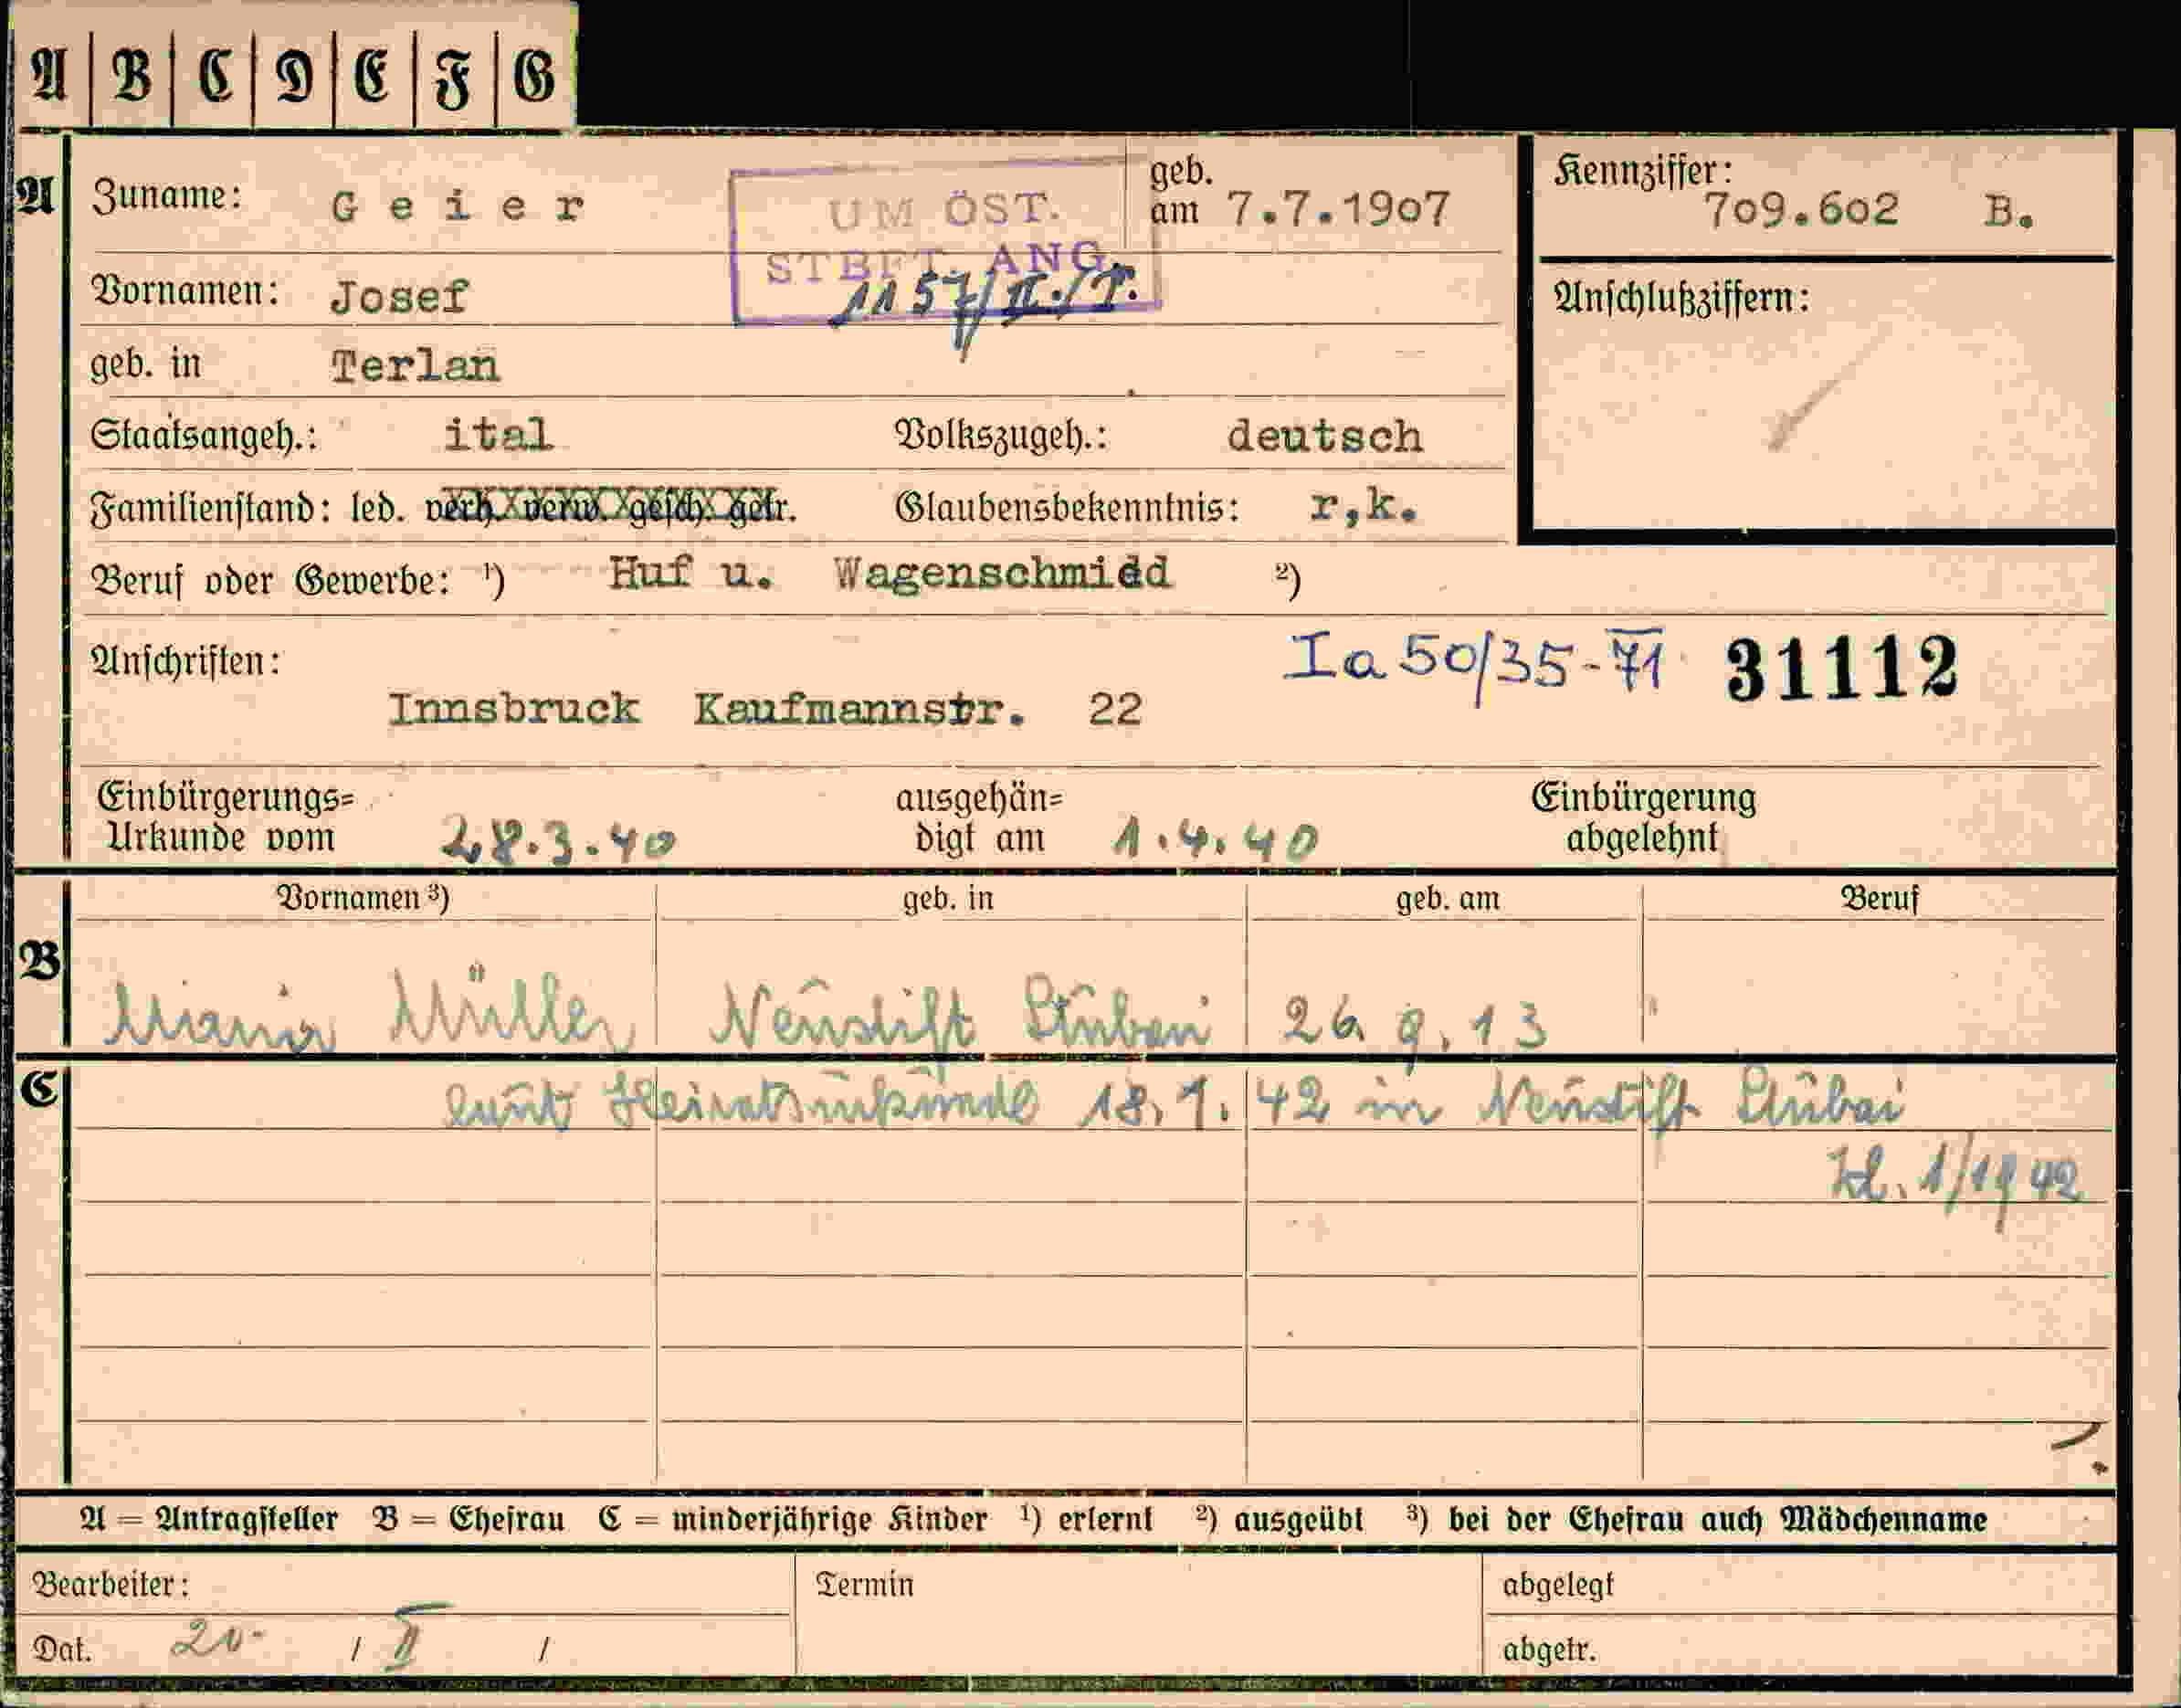 A B C D E F G
A Zuname: Geier geb. am 7.7.1907 Kennziffer: 709.602 B.
UM ÖST.
STBFT. ANG.
1157/II./T.
Vornamen: Josef Anschlußziffern:
geb. in Terlan
Staatsangeh.: ital Volkszugeh.: deutsch
Familienstand: led. verh. verw. gesch. getr. Glaubensbekenntnis: r,k.
Beruf oder Gewerbe: ¹) Huf u. Wagenschmidd ²)
Anschriften: Ia 50/35-71 31112
Innsbruck Kaufmannstr. 22
Einbürgerungs= Urkunde vom 28.3.40 ausgehän= digt am 1.4.40 Einbürgerung abgelehnt
Vornamen ³) geb. in geb. am Beruf
B Maria Müller Neustift Stubai 26. 9. 13
C laut Heiratsurkunde 18. 1. 42 in Neustift Stubai
Zl. 1/1942
A = Antragsteller B = Ehefrau C = minderjährige Kinder ¹) erlernt ²) ausgeübt ³) bei der Ehefrau auch Mädchenname
Bearbeiter: Termin abgelegt
Dat. / II / abgetr.